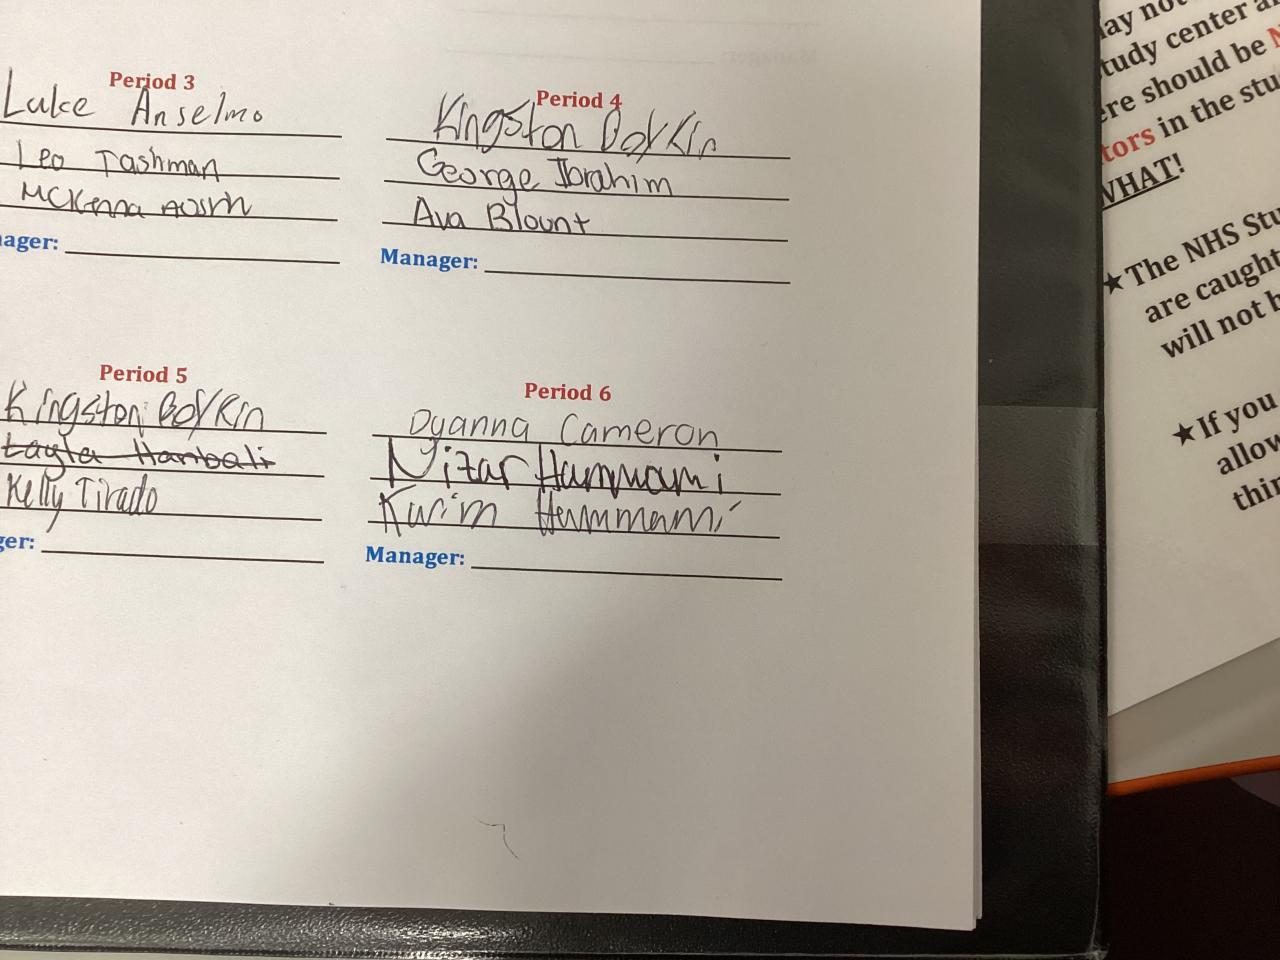 Period 3
Luke Anselmo
Leo Tashman
McKenna
nager:
Period 4
Kingston Boykin
George Ibrahim
Ava Blount
Manager:
Period 5
Kingston Boykin
Layla Hanbali
Kelly Tirado
ger:
Period 6
Dyanna Cameron
Nizar Hammami
Karim Hammami
Manager:
ay not
tudy center a
ere should be N
tors in the stu
WHAT!
★The NHS Stu
are caught
will not h
★If you
allow
thin